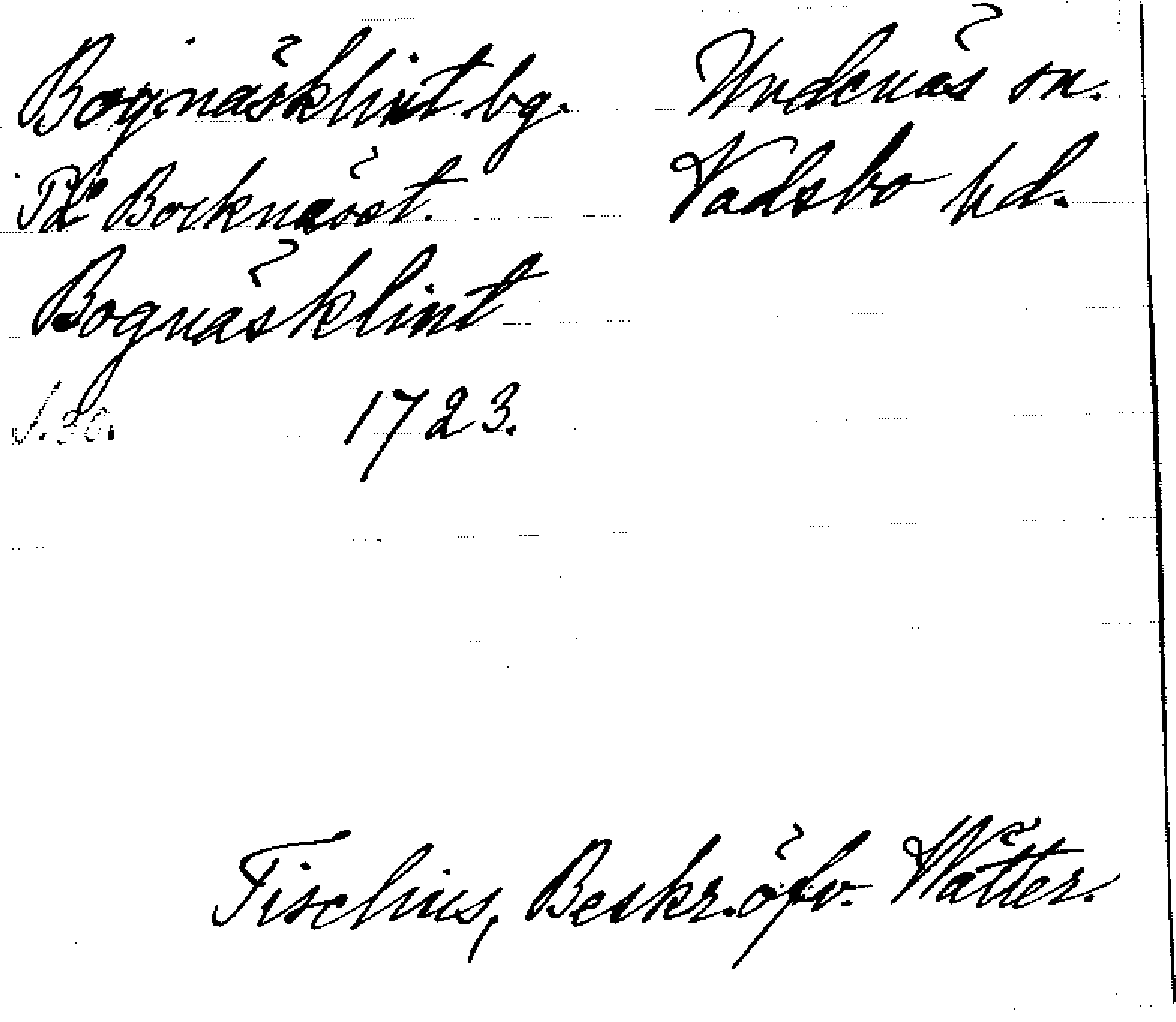 Bognäsklint bg. Undenäs sn.
Bocknäset. Vadsbo hd.
Bognäsklint
s. 30. 1723.
Tiselius, Beskr. öfv. Wätter.